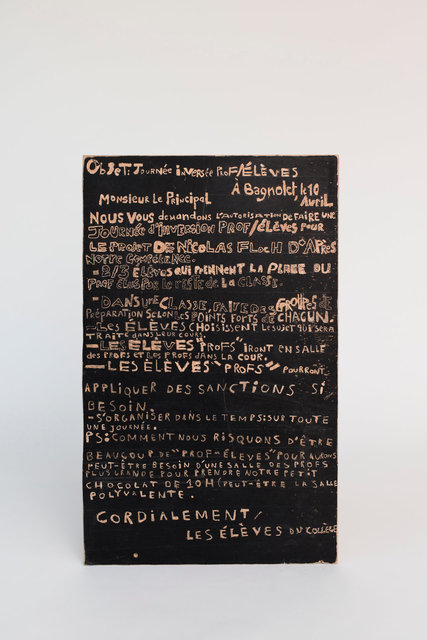 Objet: Journée inversée Prof/élèves
À Bagnolet, le 10
Monsieur Le Principal Avril
Nous vous demandons l'autorisation de faire une
Journée d'inversion Prof/élèves pour
le projet de Nicolas Floc'h d'après
notre conférence.
- 2/3 élèves qui prennent la place du
prof élus par le reste de la classe.
- Dans une classe, faire des groupes de
préparation selon les points forts de chacun.
- Les élèves choisissent le sujet qui sera
traité dans leur cours.
- Les élèves "profs" iront en salle
des profs et les profs dans la cour.
- Les élèves "profs" pourront
appliquer des sanctions si
besoin.
- s'organiser dans le temps: sur toute
une journée.
PS: comment nous risquons d'être
beaucoup de "prof-élèves" pour aurons
peut-être besoin d'une salle des profs
plus grande pour prendre notre petit
chocolat de 10H (peut-être la salle
polyvalente.
Cordialement/
Les élèves du collège